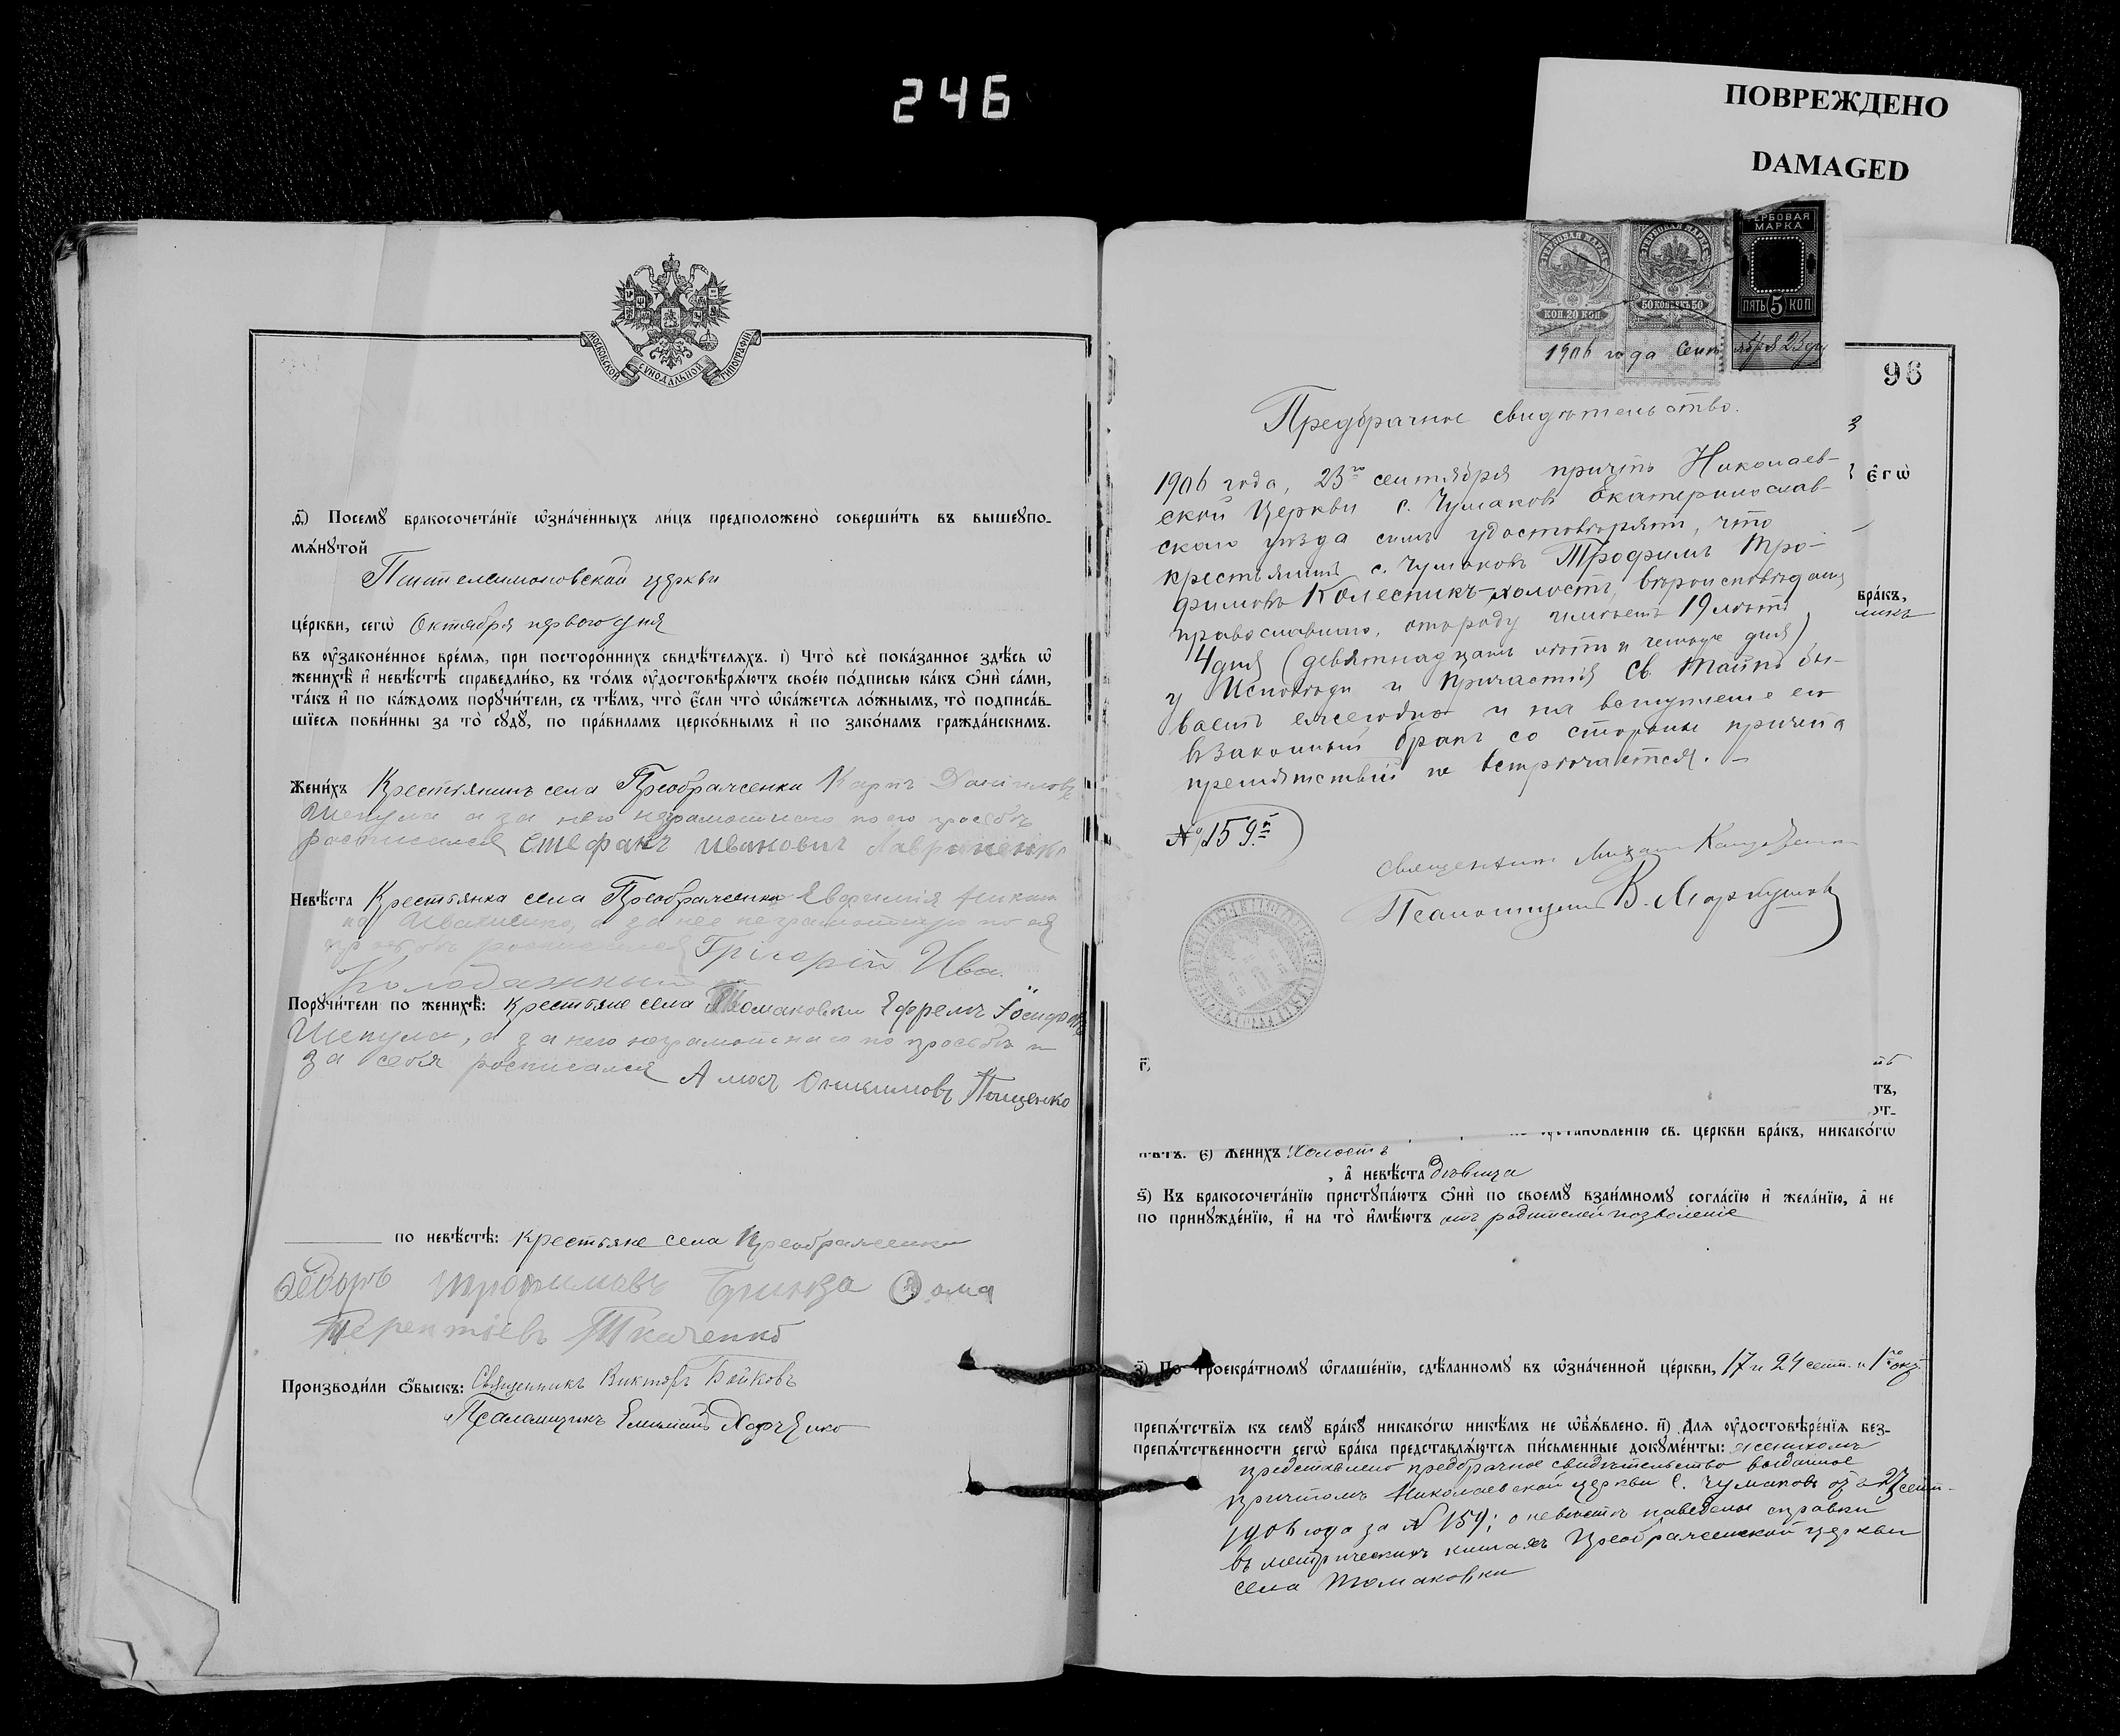 246
ПОВРЕЖДЕНО
DAMAGED
МОСКОВСКОЙ СѴНОДАЛЬНОЙ ТИПОГРАФІИ
ѳ҃) Посемꙋ бракосочета́нїе ѡ҆зна́ченныхъ ли́цъ предположено̀ соверши́ть въ вышеꙋпо-
мѧ́нꙋтой
Пантелеимоновской церкви
це́ркви, сегѡ̀ Октября перваго дня
въ ᲂу҆законе́нное вре́мѧ, при посторо́ннихъ свидѣ́телѧхъ. і҃) Что̀ всѐ пока́занное здѣ́сь ѡ҆
женихѣ̀ и҆ невѣ́стѣ справедли́во, въ то́мъ ᲂу҆достовѣрѧ́ютъ свое́ю по́дписью ка́къ ѻ҆нѝ са́ми,
та́къ и҆ по ка́ждомъ порꙋчи́тели, съ тѣ́мъ, что̀ є҆́сли что̀ ѡ҆ка́жетсѧ ло́жнымъ, то̀ подписа́в-
шїесѧ пови́нны за то̀ сꙋдꙋ̀, по пра́виламъ церко́внымъ и҆ по зако́намъ гражда́нскимъ.
Жени́хъ Крестьянинъ села Преображенки Карпъ Даниловъ
Шепула а за него неграмотнаго по его просьбѣ
росписался Стефанъ Иванович Лавриненко
Невѣ́ста Крестьянка села Преображенки Евфимія
Ивахненко, а за нее неграмотную по ея
просьбѣ росписался Грігорій Ива.
Колодажный
Порꙋчи́тели по женихѣ̀: Крестьяне села Томаковки Ефремъ Іосифовъ
Шепула, а за него неграмотнаго по просьбѣ и
за себя росписался Амосъ Онисимовъ Пащенко
по невѣ́стѣ: Крестьяне села Преображенки
Ѳедоръ Трофимовъ Ѳома
Терентіевъ Ткаченко
Производи́ли ѻ҆́быскъ: Священникъ Викторъ Бойковъ
Псаломщикъ Харченко
ГЕРБОВАЯ МАРКА
КОП. 20 КОП
ГЕРБОВАЯ МАРКА
50 КОПѢЕКЪ 50
ГЕРБОВАЯ
МАРКА
ПЯТЬ 5 КОП
1906 года Сентября 23 дня
96
Предбрачное свидѣтельство.
є҆гѡ̀
1906 года, 23го сентября причтъ Николаев-
ской Церкви с. Чумаковъ Екатеринослав-
скаго уѣзда симъ удостовѣряетъ, что
крестьянинъ с. Чумаковъ Трофимъ Тро-
фимовъ Колесникъ-холостъ, вѣроисповѣданія
бра́къ,
православнаго, отъ роду имѣетъ 19 лѣтъ
4 дня (девятнадцать лѣтъ и четыре дня)
у Исповѣди и причастія Св. Таинъ бы-
ваетъ ежегодно и на вступленіе его
въ законный бракъ со стороны причта
препятствій не встрѣчается. –
№ 159й
Священникъ Михаилъ
Псаломщикъ В.
г҃)
тъ,
от-
св. це́ркви бра́къ, никако́гѡ
нѣ́тъ. є҃) Жени́хъ Холостъ
, а҆ невѣ́ста дѣвица
ѕ҃) Къ бракосочета́нїю пристꙋпа́ютъ ѻ҆нѝ по своемꙋ̀ взаи́мномꙋ согла́сїю и҆ жела́нїю, а҆ не
по принꙋжде́нїю, и҆ на то̀ и҆мѣ́ютъ отъ родителей позволеніе
з҃) По троекра́тномꙋ ѡ҆глаше́нїю, сдѣ́ланномꙋ въ ѡ҆зна́ченной це́ркви, 17 и 24 сент. и 1го окт.
препѧ́тствїѧ къ семꙋ̀ бра́кꙋ никако́гѡ никѣ́мъ не ѡ҆б̾ѧ́влено. и҃) Длѧ ᲂу҆достовѣре́нїѧ без-
препѧ́тственности сегѡ̀ бра́ка представлѧ́ютсѧ пи́сьменные докꙋме́нты: женихомъ
представлено предбрачное свидѣтельство выданное
причтомъ Николаевской церкви с. Чумаковъ отъ 23 сент.
1906 года за № 159; о невѣстѣ наведены справки
въ метрическихъ книгахъ Преображенской церкви
села Томаковки